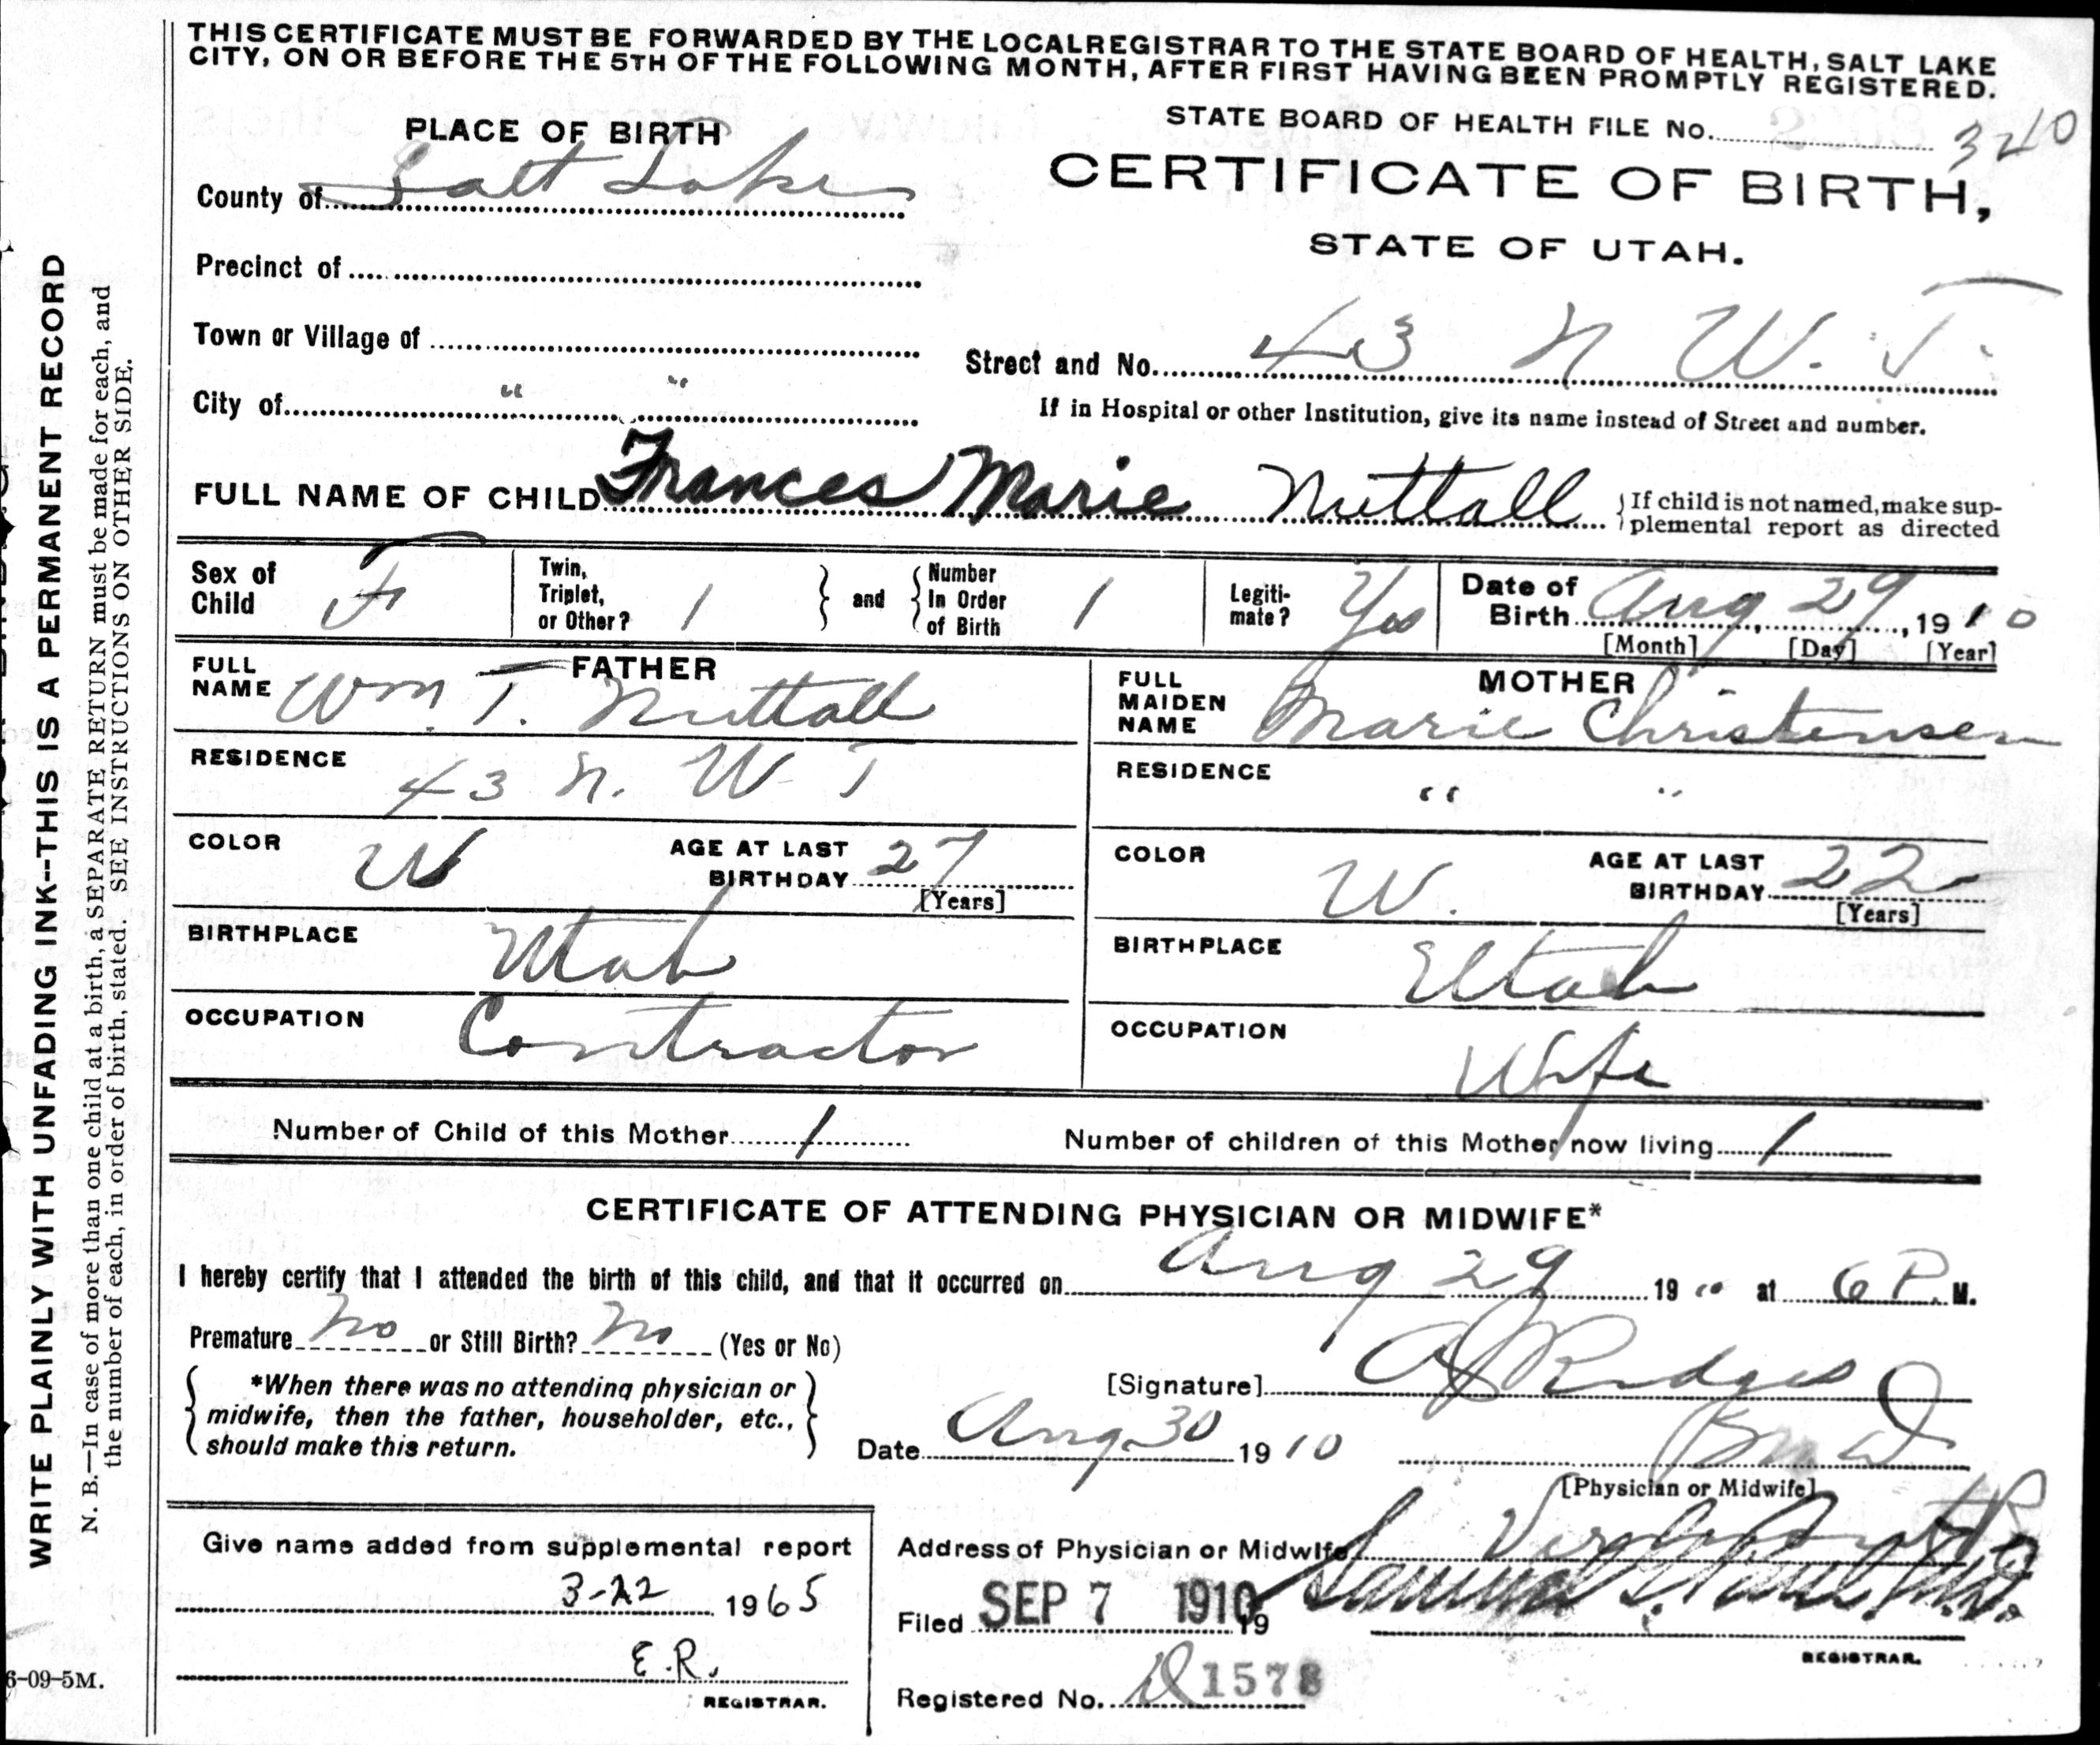 THIS CERTIFICATE MUST BE FORWARDED BY THE LOCAL REGISTRAR TO THE STATE BOARD OF HEALTH, SALT LAKE
CITY, ON OR BEFORE THE 5TH OF THE FOLLOWING MONTH, AFTER FIRST HAVING BEEN PROMPTLY REGISTERED.
STATE BOARD OF HEALTH FILE No. 340
PLACE OF BIRTH
CERTIFICATE OF BIRTH,
County of Salt Lake
STATE OF UTAH.
Precinct of
Town or Village of
Street and No. 43 N W. T
City of " "
If in Hospital or other Institution, give its name instead of Street and number.
FULL NAME OF CHILD Frances Marie Nuttall { If child is not named, make sup-
plemental report as directed
Sex of Child F
Twin, Triplet, or Other? 1 } and { Number In Order of Birth 1
Legiti-mate? Yes
Date of Birth Aug 29, 1910
[Month] [Day] [Year]
FATHER
FULL NAME Wm. T. Nuttall
RESIDENCE 43 N. W T
COLOR W AGE AT LAST BIRTHDAY 27
[Years]
BIRTHPLACE Utah
OCCUPATION Contractor
MOTHER
FULL MAIDEN NAME Marie Christensen
RESIDENCE " "
COLOR W. AGE AT LAST BIRTHDAY 22
[Years]
BIRTHPLACE Utah
OCCUPATION Wife
Number of Child of this Mother 1 Number of children of this Mother now living 1
CERTIFICATE OF ATTENDING PHYSICIAN OR MIDWIFE*
I hereby certify that I attended the birth of this child, and that it occurred on Aug 29 1910 at 6 P. M.
Premature No or Still Birth? No (Yes or No)
*When there was no attending physician or
midwife, then the father, householder, etc.,
should make this return.
[Signature] Ridges
Date Aug 30 1910
[Physician or Midwife]
Give name added from supplemental report
3-22 1965
E.R.
REGISTRAR.
Address of Physician or Midwife
Filed SEP 7 1910 19
REGISTRAR.
Registered No. 1578
WRITE PLAINLY WITH UNFADING INK--THIS IS A PERMANENT RECORD
N. B.—In case of more than one child at a birth, a SEPARATE RETURN must be made for each, and
the number of each, in order of birth, stated. SEE INSTRUCTIONS ON OTHER SIDE.
6-09-5M.